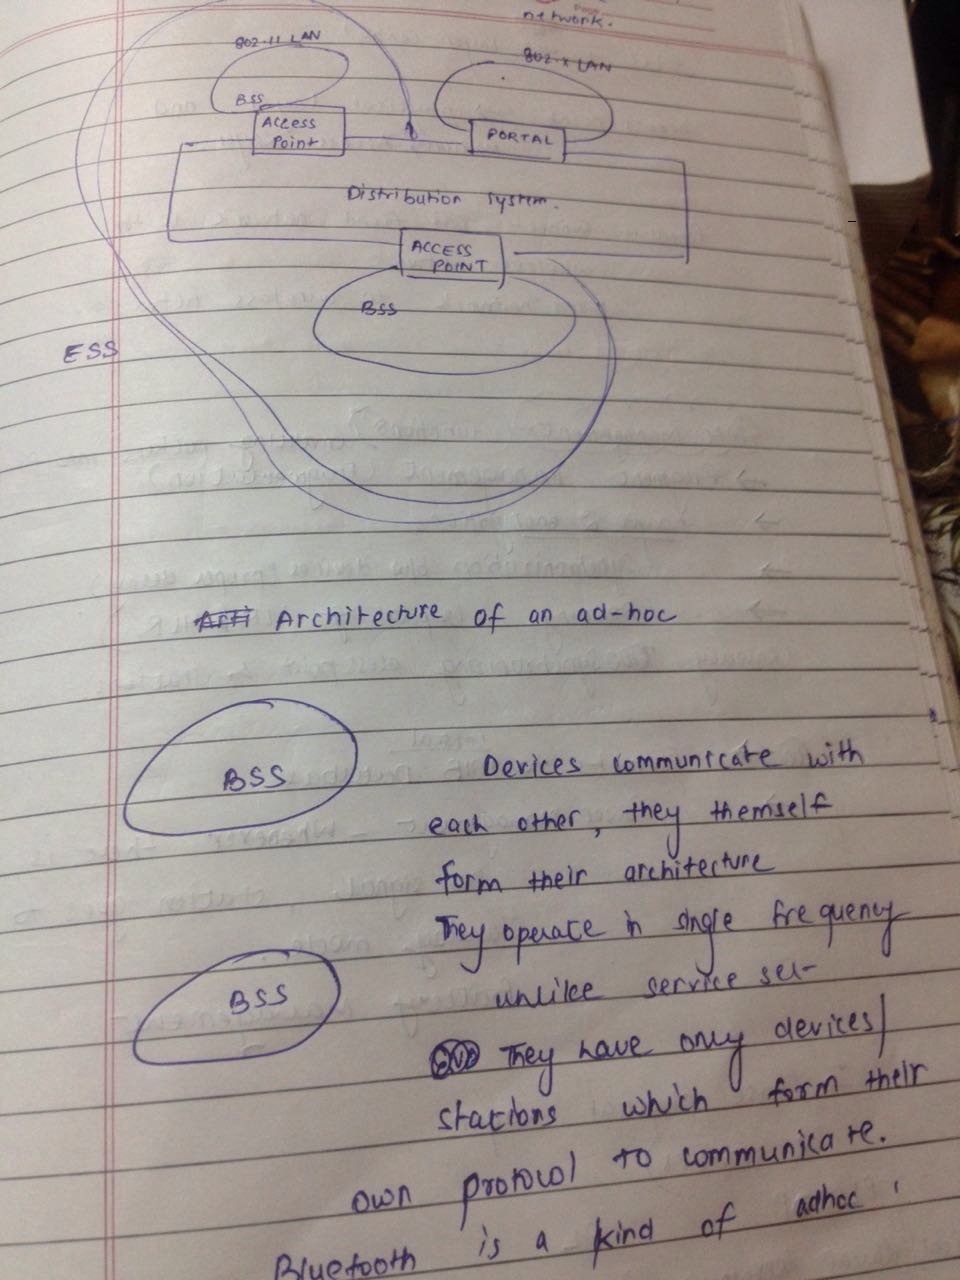 network.
802.11 LAN
802.x LAN
BSS
Access
Point
PORTAL
Distribution system.
ACCESS
POINT
BSS
ESS
Architecture of an ad-hoc
BSS
Devices communicate with
each other, they themself
form their architecture
They operate in single frequency
BSS
unlike service set
They have only devices/
stations which form their
own protocol to communicate.
Bluetooth is a kind of adhoc